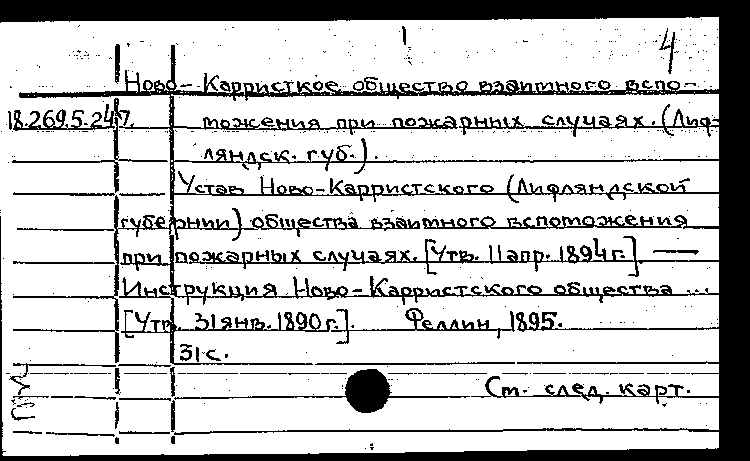 4
Ново-Карристкое общество взаимного вспо-
18.269.5.247. можения при пожарных случаях. (Лиф-
ляндск. губ.).
Устав Ново-Карристского (Лифляндской
губернии) общества взаимного вспоможения
при пожарных случаях. [Утв. 11 апр. 1894 г.]. —
Инструкция Ново-Карристского общества ...
[Утв. 31 янв. 1890 г.]. Феллин, 1895.
31 с.
См. след. карт.